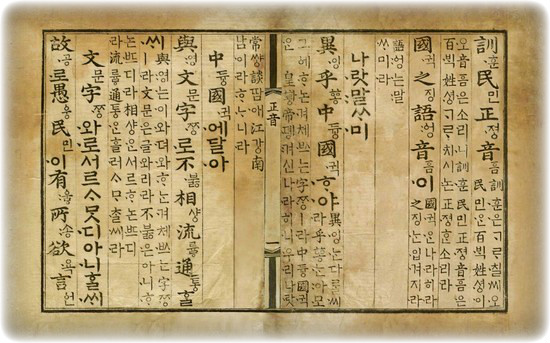 訓훈民민正졍音ᅙᅳᆷ 訓훈은ᄀᆞᄅᆞ칠씨오
民민ᄋᆞᆫ百ᄇᆡᆨ姓셩이
오音ᅙᅳᆷ은소리니訓훈民민正졍音ᅙᅳᆷ은
百ᄇᆡᆨ姓셩ᄀᆞᄅᆞ치시논正졍ᄒᆞᆫ소리라
國귁之징語ᅌᅥᆼ音ᅙᅳᆷ이 國귁ᄋᆞᆫ나라히라
之징ᄂᆞᆫ입겨지라
語ᅌᅥᆼᄂᆞᆫ말
ᄊᆞ미라
나랏말ᄊᆞ미
異잉乎ᅘᅩᆼ中듀ᇰ國귁ᄒᆞ야 異잉ᄂᆞᆫ다ᄅᆞᆯ씨
라乎ᅘᅩᆼᄂᆞᆫ아모
그ᅌᅦᄒᆞ논겨체ᄡᅳᄂᆞᆫ字ᄍᆞᆼㅣ라中듀ᇰ國귁
ᄋᆞᆫ皇ᅘᅪᇰ帝뎽겨신나라히니우리나랏
正音
常쌰ᇰ談땀애江가ᇰ南
남이라ᄒᆞᄂᆞ니라
中듀ᇰ國귁에달아
與영文문字ᄍᆞᆼ로不부ᇙ相샤ᇰ流륳通토ᇰᄒᆞᆯ
ᄊᆡ 與영는이와뎌와ᄒᆞᄂᆞᆫ겨체ᄡᅳᄂᆞᆫ字ᄍᆞᆼ
ㅣ라文문은글와리라不부ᇙ은아니ᄒᆞ
논ᄠᅳ디라相샤ᇰᄋᆞᆫ서르ᄒᆞ논ᄠᅳ디
라流륳通토ᇰᄋᆞᆫ흘러ᄉᆞᄆᆞᄎᆞᆯ씨라
文문字ᄍᆞᆼ와로서르ᄉᆞᄆᆞᆺ디아니ᄒᆞᆯᄊᆡ
故공로愚ᅌᅮᆼ民민이有우ᇢ所송欲욕言언